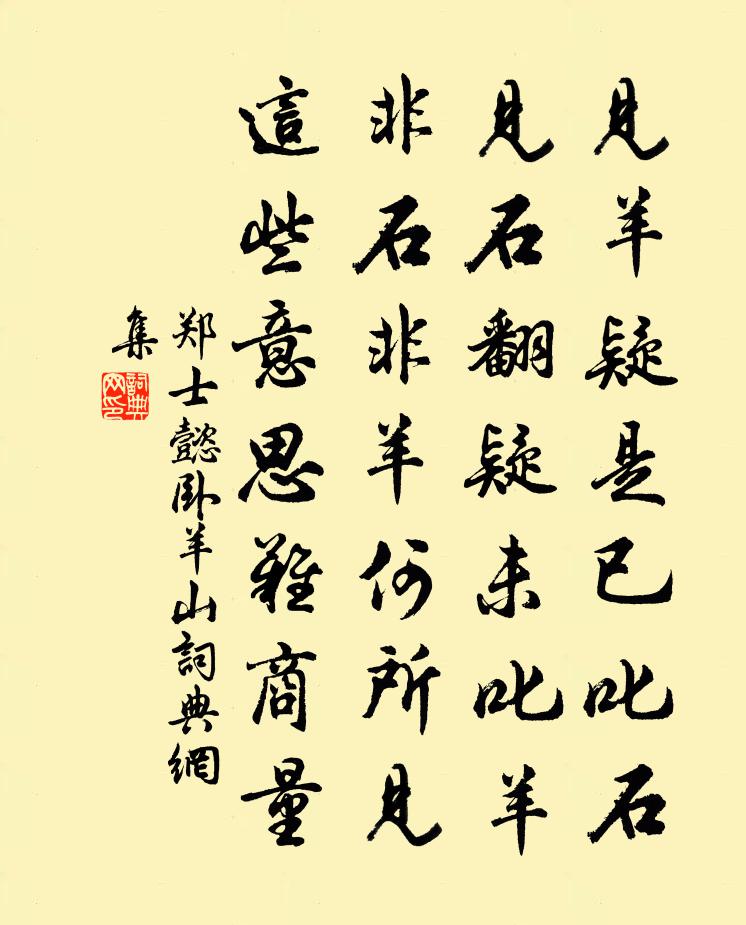 見羊疑是已叱石
見石翻疑未叱羊
非石非羊何所見
這些意思難商量
郑士懿卧羊山詞典網
集
詞典
网印